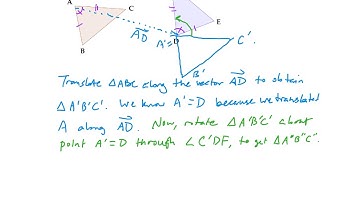 A
C
B
E
D
AD
A'=
C'.
B'
Translate △ABC along the vector AD to obtain
△A'B'C'. We know A'=D because we translated
A along AD. Now, rotate △A'B'C' about
point A'=D through ∠C'DF, to get △A"B"C".